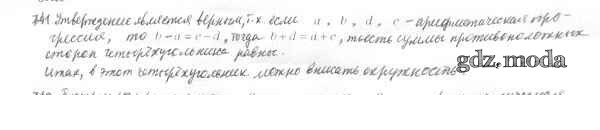 741. Утверждение является верным, т.к. если a, b, d, c – арифметическая про-
грессия, то b − a = c − d, тогда b + d = a + c, то есть суммы противоположных
сторон четырёхугольника равны.
Итак, в этот четырёхугольник можно вписать окружность.
gdz.moda